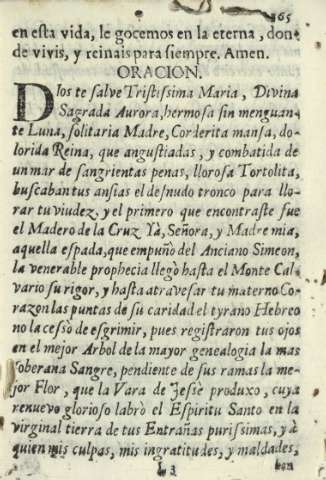 165
en esta vida, le gocemos en la eterna, don-
de vivis, y reinais para siempre. Amen.
ORACION.
DIos te salve Tristissima Maria, Divina
Sagrada Aurora, hermosa sin menguan-
te Luna, solitaria Madre, Corderita mansa, do-
lorida Reina, que angustiadas, y combatida de
un mar de sangrientas penas, llorosa Tortolita,
buscaban tus ansias el desnudo tronco para llo-
rar tu viudez, y el primero que encontraste fue
el Madero de la Cruz Yà, Señora, y Madre mia,
aquella espada, que empuñò del Anciano Simeon,
la venerable prophecia llegò hasta el Monte Cal-
vario su rigor, y hasta atravesar tu materno Co-
razon las puntas de su caridad el tyrano Hebreo
no la cessò de esgrimir, pues registraron tus ojos
en el mejor Arbol de la mayor genealogia la mas
soberana Sangre, pendiente de sus ramas la me-
jor Flor, que la Vara de Jessè produxo, cuya
renuevo glorioso labrò el Espiritu Santo en la
virginal tierra de tus Entrañas purissimas, y à
quien mis culpas, mis ingratitudes, y maldades,
L 3